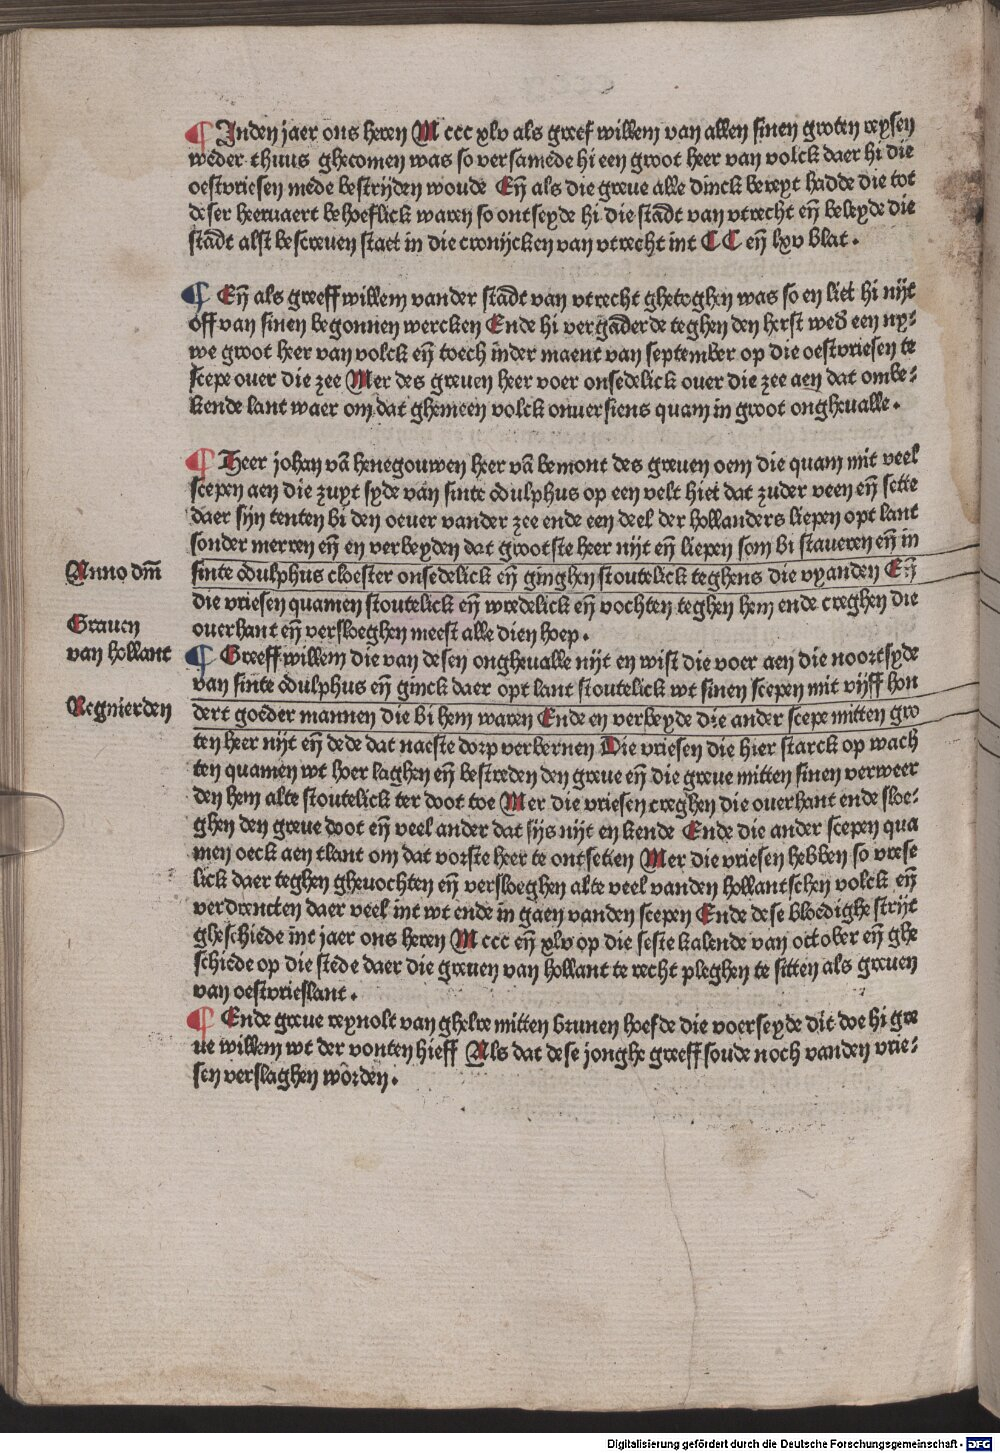 ¶ Inden jaer ons heren M ccc xlv als greef willem van allen sinen groten reysen
weder thuus ghecomen was so versamede hi een groot heer van volck daer hi die
oestvriesen mede bestrijden woude Eñ als die greue alle dinck bereyt hadde die tot
deser heeruaert behoeflick waren so ontseyde hi die stadt van vtrecht eñ beleyde die
stadt alst bescreuen staet in die cronijcken van vtrecht int CC eñ lxv blat.
¶ Eñ als greeff willem vander stadt van vtrecht ghetoghen was so en liet hi nijt
off van sinen begonnen wercken Ende hi vergaderde teghen den herst wed een ny⸗
we groot heer van volck eñ toech inder maent van september op die oestvriesen te
scepe ouer die zee Mer des greuen heer voer onsedelick ouer die zee aen dat ombe⸗
kende lant waer om dat ghemeen volck onuersiens quam in groot ongheualle.
¶ Heer johan vā henegouwen heer vā bemont des greuen oem die quam mit veel
scepen aen die zuyt syde van sinte odulphus op een velt hiet dat zuder veen eñ sette
daer sijn tenten bi den oeuer vander zee ende een deel der hollanders liepen opt lant
sonder merren eñ en verbeyden dat grootste heer nijt eñ liepen som bi staueren eñ in
Anno dm̄
sinte odulphus cloester onsedelick eñ ginghen stoutelick teghens die vyanden Eñ
die vriesen quamen stoutelick eñ wredelick eñ vochten teghen hem ende creghen die
Grauen
ouerhant eñ versloeghen meest alle dien hoep.
van hollant
¶ Greeff willem die van desen ongheualle nijt en wist die voer aen die noortsyde
van sinte odulphus eñ ginck daer opt lant stoutelick wt sinen scepen mit vijff hon
Regnierden
dert goeder mannen die bi hem waren Ende en verbeyde die ander scepe mitten gro
ten heer nijt eñ dede dat naeste dorp verbernen Die vriesen die hier starck op wach
ten quamen wt hoer laghen eñ bestreden den greue eñ die greue mitten sinen verweer
den hem alte stoutelick ter doot toe Mer die vriesen creghen die ouerhant ende sloe⸗
ghen den greue doot eñ veel ander dat sijs nijt en kende Ende die ander scepen qua
men oeck aen tlant om dat vorste heer te ontsetten Mer die vriesen hebben so vrese
lick daer teghen gheuochten eñ versloeghen alte veel vanden hollantschen volck eñ
verdrencten daer veel int wt ende in gaen vanden scepen Ende dese bloedighe strijt
gheschiede int jaer ons heren M ccc eñ xlv op die seste kalende van october eñ ghe
schiede op die stede daer die greuen van hollant te recht pleghen te sitten als greuen
van oestvrieslant.
¶ Ende greue reynolt van ghelre mitten brunen hoefde die voerseyde dit doe hi gre
ue willem wt der vonten hieff Als dat dese jonghe greeff soude noch vanden vrie⸗
sen verslaghen worden.
Digitalisierung gefördert durch die Deutsche Forschungsgemeinschaft - DFG